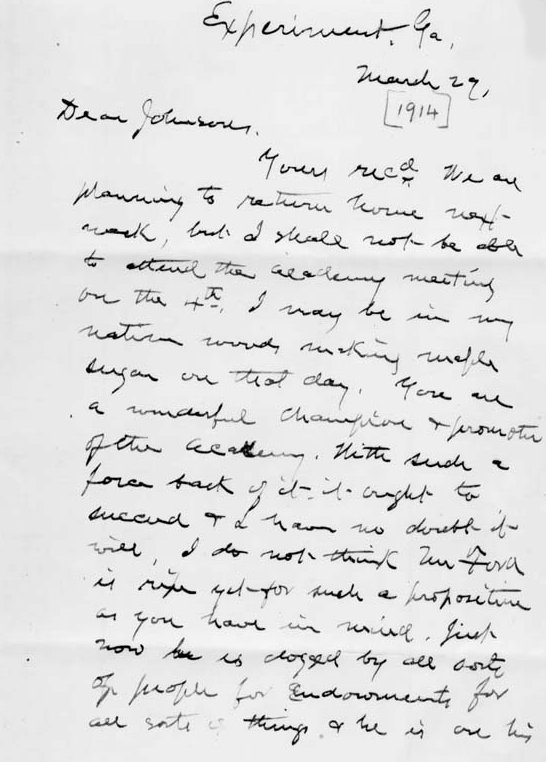 Experiment, Ga,
March 29,
[1914]
Dear Johnson,
Yours rec^d. We are
planning to return home next
week, but I shall not be able
to attend the academy meeting
on the 4th. I may be in my
native woods making maple
sugar on that day. You are
a wonderful champion & promoter
of the academy. With such a
force back of it it ought to
succeed & I have no doubt it
will, I do not think Mr Ford
is ripe yet for such a proposition
as you have in mind. Just
now he is doged by all sorts
of people for Endowments for
all sorts of things & he is on his